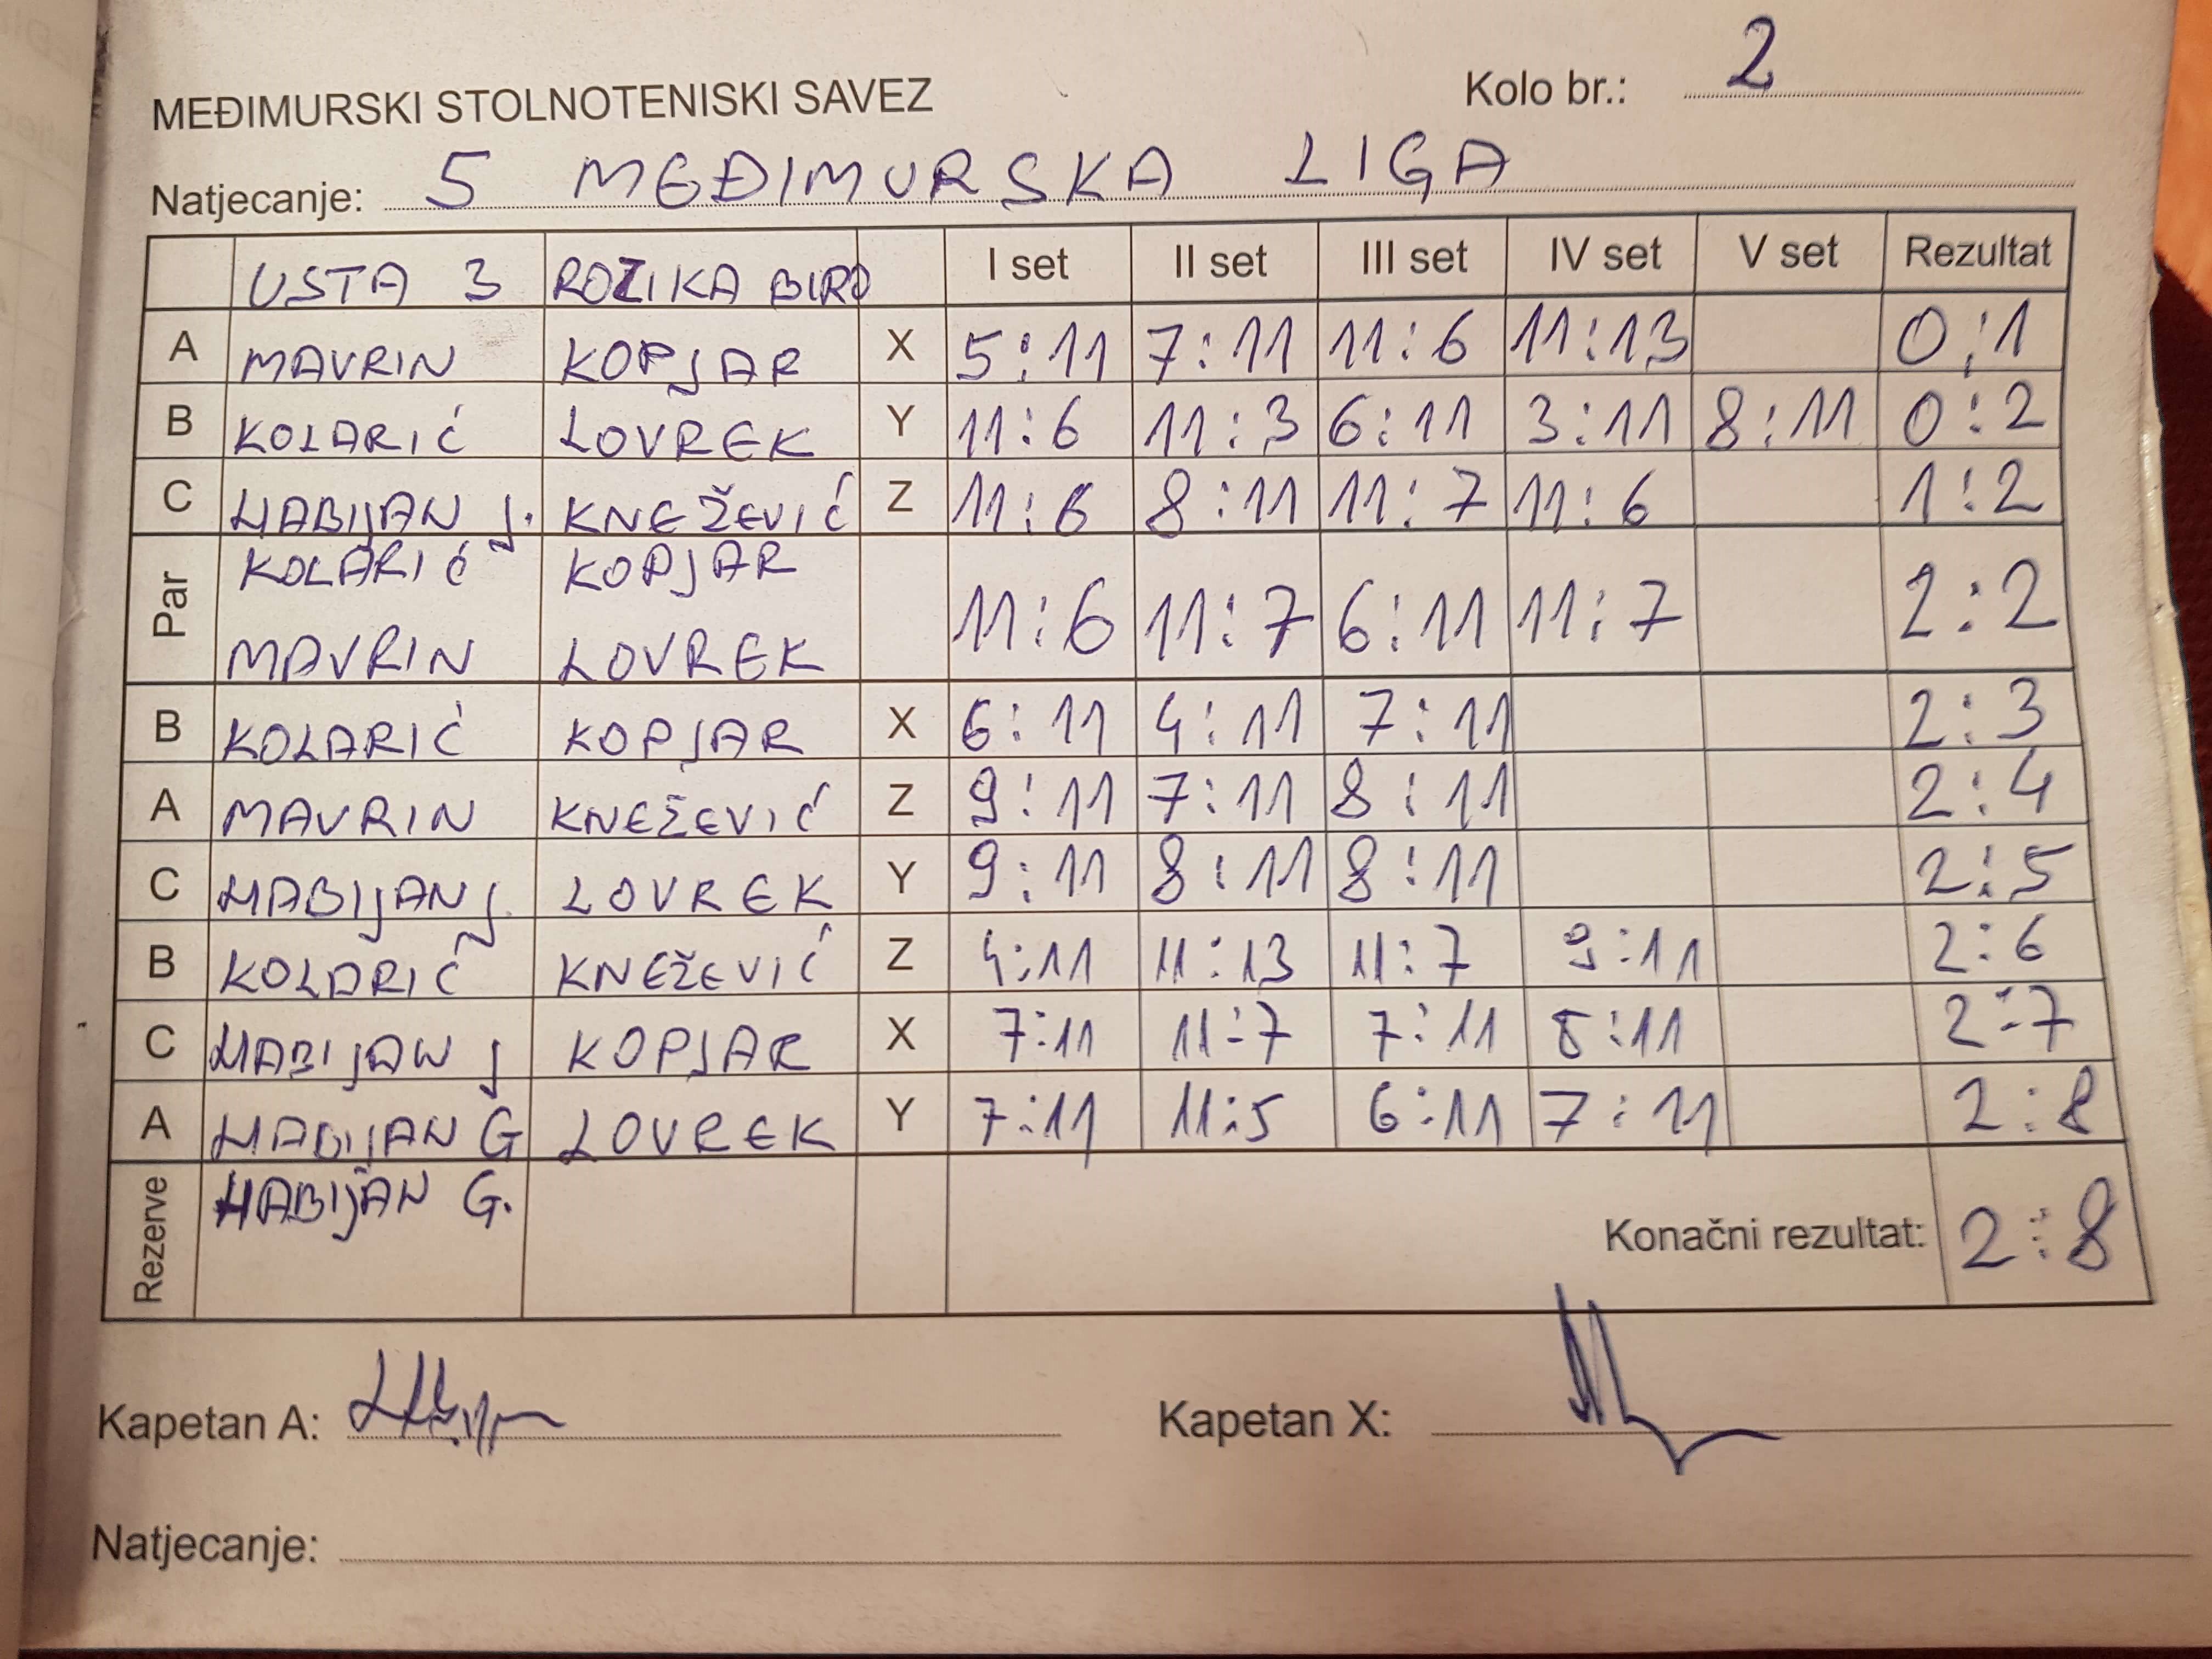 MEĐIMURSKI STOLNOTENISKI SAVEZ Kolo br.: 2
Natjecanje: 5 MEĐIMURSKA LIGA
USTA 3 ROZIKA BIRO I set II set III set IV set V set Rezultat
A MAVRIN KOPJAR X 5:11 7:11 11:6 11:13 0:1
B KOLARIĆ LOVREK Y 11:6 11:3 6:11 3:11 8:11 0:2
C HABIJAN J. KNEŽEVIĆ Z 11:6 8:11 11:7 11:6 1:2
KOLARIĆ KOPJAR
Par 11:6 11:7 6:11 11:7 2:2
MAVRIN LOVREK
B KOLARIĆ KOPJAR X 6:11 4:11 7:11 2:3
A MAVRIN KNEŽEVIĆ Z 9:11 7:11 8:11 2:4
C HABIJAN J. LOVREK Y 9:11 8:11 8:11 2:5
B KOLARIĆ KNEŽEVIĆ Z 4:11 11:13 11:7 9:11 2:6
C HABIJAN J KOPJAR X 7:11 11:7 7:11 :11 2:7
A HABIJAN G LOVREK Y 7:11 11:5 6:11 7:11 2:8
Rezerve HABIJAN G. Konačni rezultat: 2:8
Kapetan A: Kapetan X:
Natjecanje: